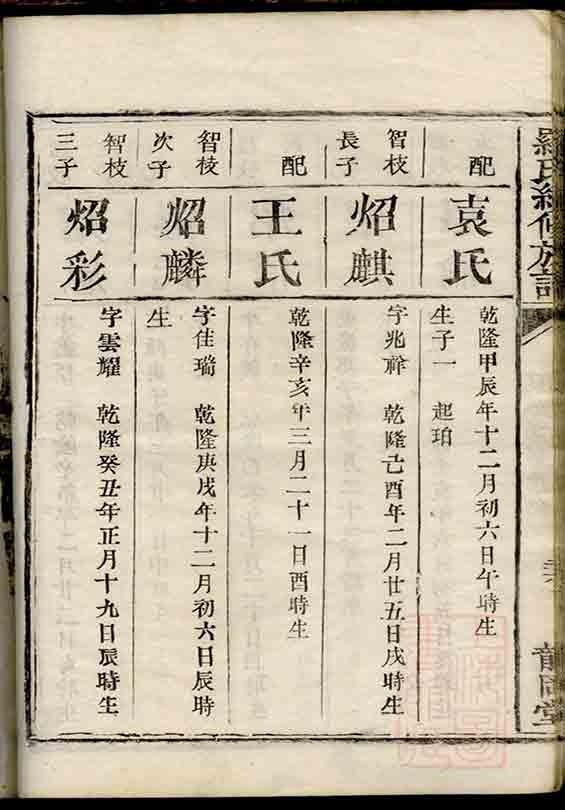 羅氏續修族譜
配
袁氏
乾隆甲辰年十二月初六日午時生
生子一 起珀
智枝
長子
炤麒
字兆祥 乾隆己酉年二月廿五日戌時生
配
王氏
乾隆辛亥年三月二十一日酉時生
智棱
次子
炤麟
字佳瑞 乾隆庚戌年十二月初六日辰時
生
智枝
三子
炤彩
字雲耀 乾隆癸丑年正月十九日辰時生